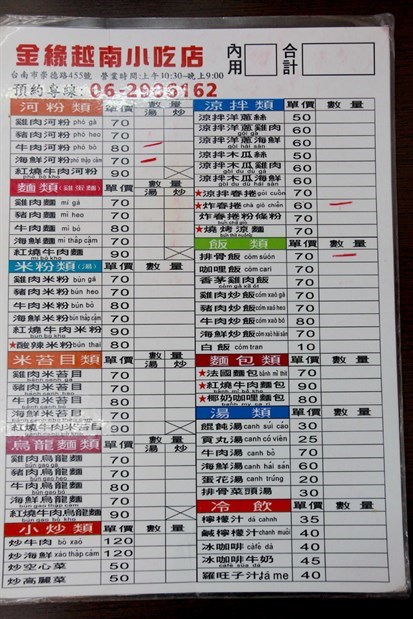 金緣越南小吃店
台南市崇德路455號 營業時間:上午10:30~晚上9:00
預約專線: 06-2986162
內用
合計
河粉類 單價 數量 湯 炒
雞肉河粉 phở gà 70
豬肉河粉 phở heo 70
牛肉河粉 phở bò 80
海鮮河粉 phở thập cẩm 70
紅燒牛肉河粉 phở bò kho 90
麵類(雞蛋麵) 單價 數量
雞肉麵 mì gà 70
豬肉麵 mì heo 70
牛肉麵 mì bò 80
海鮮麵 mì thập cẩm 70
紅燒牛肉麵 mì bò kho 90
米粉類(湯) 單價 數量
雞肉米粉 bún gà 70
豬肉米粉 bún heo 70
牛肉米粉 bún bò 80
海鮮米粉 bún thập cẩm 70
紅燒牛肉米粉 bún bò kho 90
★酸辣米粉 bún thái 80
米苔目類 單價 數量 湯 炒
雞肉米苔目 bánh canh gà 70
豬肉米苔目 bánh canh heo 70
牛肉米苔目 bánh canh bò 80
海鮮米苔目 bánh canh thập cẩm 70
紅燒牛肉米苔目 90
烏龍麵類 單價 數量 湯 炒
雞肉烏龍麵 bún gạo gà 70
豬肉烏龍麵 bún gạo heo 70
牛肉烏龍麵 bún gạo bò 80
海鮮烏龍麵 bún gạo thập cẩm 70
紅燒牛肉烏龍麵 bún gạo bò kho 90
小炒類 單價 數量
炒牛肉 bò xào 120
炒海鮮 xào thập cẩm 120
炒空心菜 50
炒高麗菜 50
涼拌類 單價 數量
涼拌洋蔥絲 50
涼拌洋蔥雞肉 gỏi gà 60
涼拌洋蔥海鮮 gỏi hải sản 60
涼拌木瓜絲 50
涼拌木瓜雞肉 gỏi đu đủ gà 60
涼拌木瓜海鮮 gỏi đu đủ hải sản 60
★涼拌春捲 gỏi cuốn 70
★炸春捲 chả giò chiên 60
炸春捲粉條粉 70
★燒烤涼麵 bún thịt nướng 70
飯類 單價 數量
排骨飯 cơm sườn 70
咖哩飯 cơm cari 70
香茅雞肉飯 cơm gà xả ớt 70
雞肉炒飯 cơm xào gà 70
豬肉炒飯 cơm xào heo 70
牛肉炒飯 cơm xào bò 80
海鮮炒飯 cơm xào hải sản 70
白飯 cơm trắn 10
麵包類 單價 數量
★法國麵包 bánh mì thịt 70
★紅燒牛肉麵包 bánh mì bò kho 90
★椰奶咖哩麵包 bánh mỳ ca ri 80
湯類 單價 數量
餛飩湯 canh súi cảo 30
貢丸湯 canh cỏ viên 25
牛肉湯 canh bò 70
海鮮湯 canh hải sản 60
蛋花湯 canh trứng 20
排骨菜頭湯 30
冷飲 單價 數量
檸檬汁 đá cahnh 35
鹹檸檬汁 chanh muối 40
冰咖啡 cafe đá 40
冰咖啡牛奶 cafe sữa đá 45
羅旺子汁 đá me 40